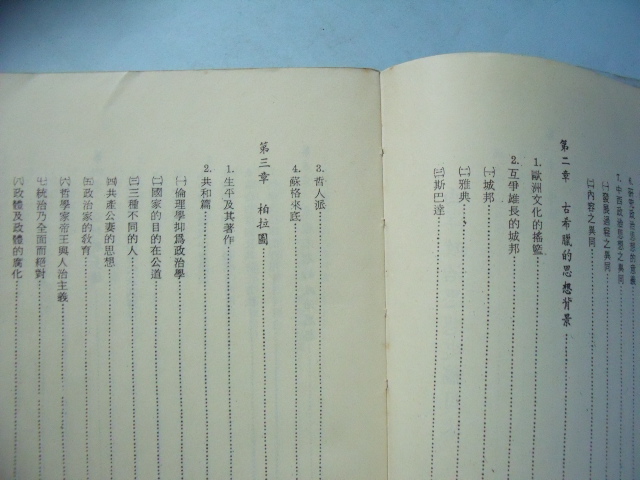 6. 研究政治思想的意義
7. 中西政治思想之異同
㈠發展過程之異同
㈡內容之異同
第二章　古希臘的思想背景
1. 歐洲文化的搖籃
2. 互爭雄長的城邦
㈠城邦
㈡雅典
㈢斯巴達
3. 哲人派
4. 蘇格來底
第三章　柏拉圖
1. 生平及其著作
2. 共和篇
㈠倫理學抑爲政治學
㈡國家的目的在公道
㈢三種不同的人
㈣共產公妻的思想
㈤政治家的敎育
㈥哲學家帝王與人治主義
㈦統治乃全面而絕對
㈧政體及政體的腐化